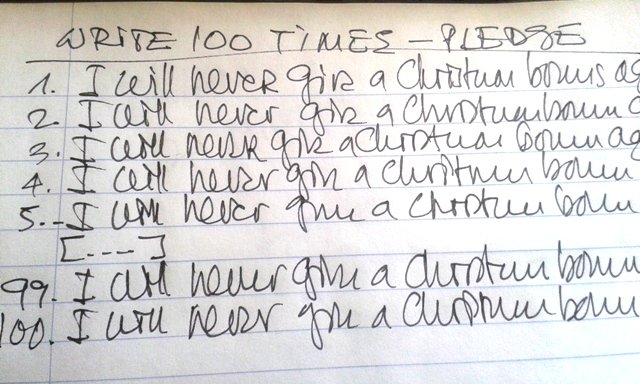 WRITE 100 TIMES - PLEDGE
1. I will never give a Christmas bonus ag
2. I will never give a Christmas bonus a
3. I will never give a Christmas bonus ag
4. I will never give a Christmas bonus
5. - I will never give a Christmas bonus
[----]
99. I will never give a Christmas bonus
100. I will never give a Christmas bonus